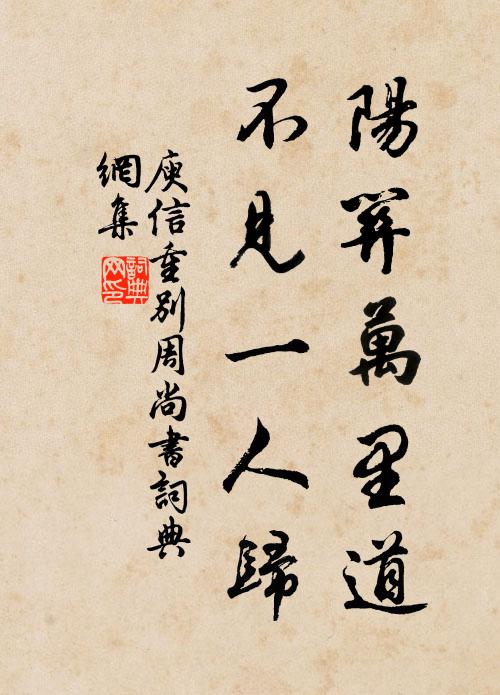 陽關萬里道
不見一人歸
庾信重別周尚書詞典
網集
詞典
網印